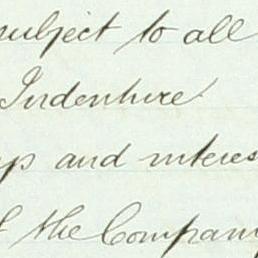 subject to all
Indenture
and interes
the Company